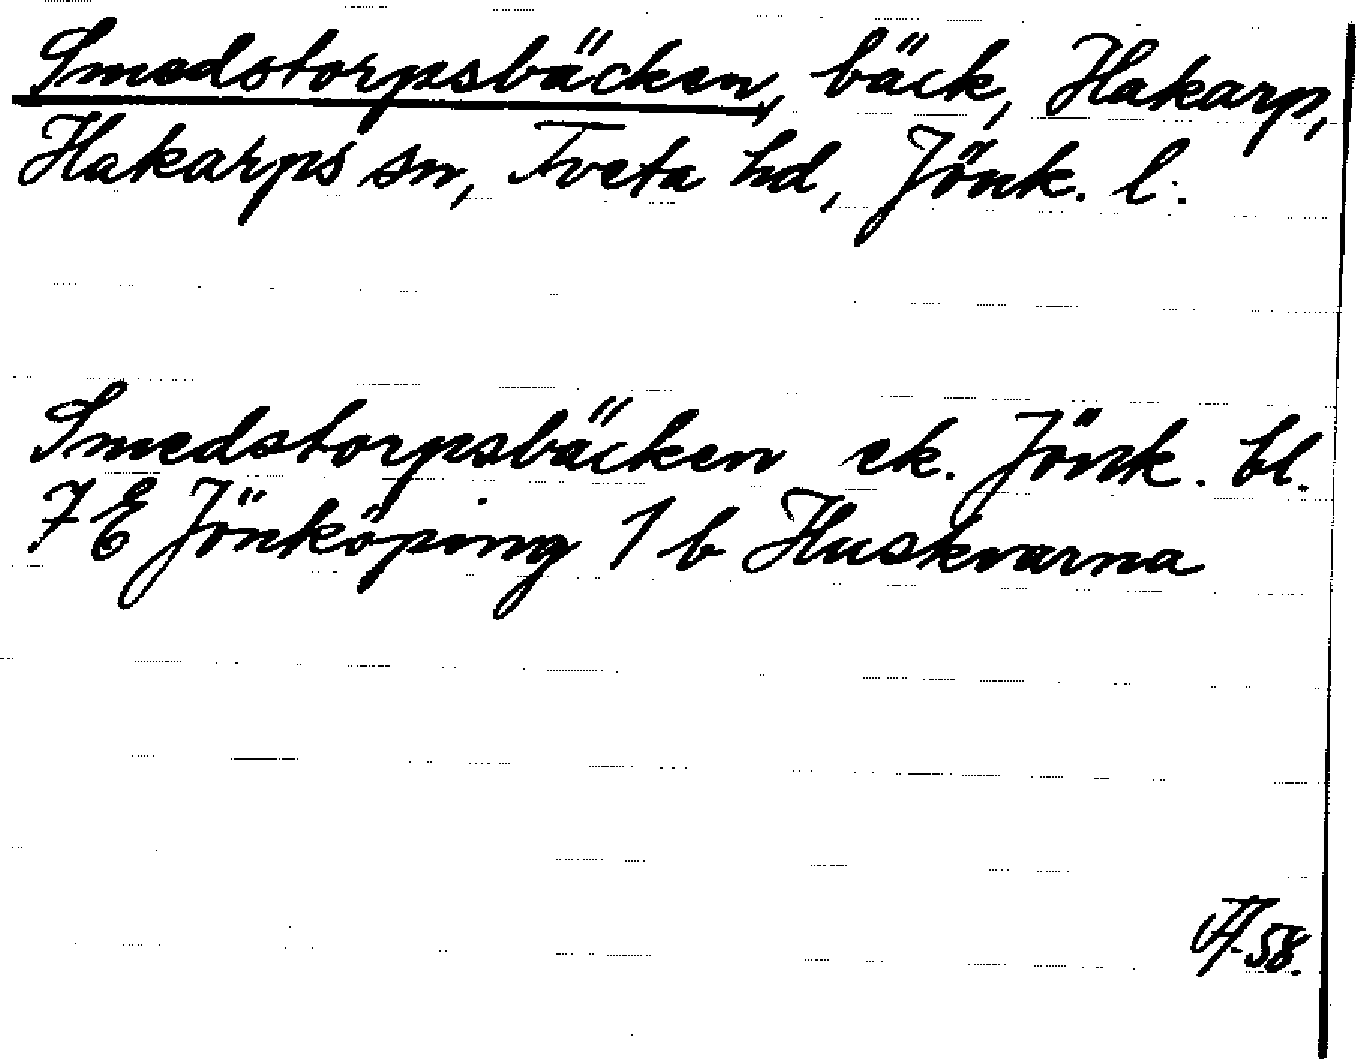 Smedstorpsbäcken, bäck, Hakarp,
Hakarps sn, Tveta hd, Jönk. l.
Smedstorpsbäcken ek. Jönk. bl.
7E Jönköping 1 b Huskvarna
58.